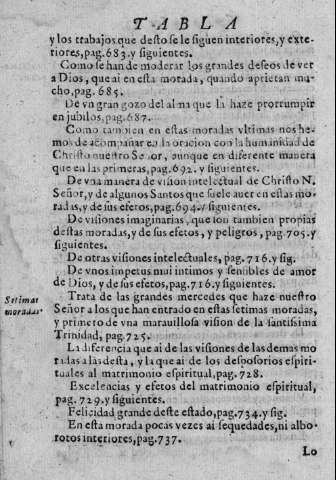 TABLA
y los trabajos que desto se le siguen interiores, y exte-
riores, pag. 683. y siguientes.
Como se han de moderar los grandes deseos de ver
a Dios, que ai en esta morada, quando aprietan mu-
cho, pag. 685.
De vn gran gozo del alma que la haze prorrumpir
en jubilos, pag. 687.
Como tambien en estas moradas vltimas nos he-
mos de acompañar en la oracion con la humanidad de
Christo nuestro Señor, aunque en diferente manera
que en las primeras, pag. 692. y siguientes.
De vna manera de vision intelectual de Christo N.
Señor, y de algunos Santos que suele auer en estas mo-
radas, y de sus efetos, pag. 694. y siguientes.
De visiones imaginarias, que son tambien propias
destas moradas, y de sus efetos, y peligros, pag. 705. y
siguientes.
De otras visiones intelectuales, pag. 716. y sig.
De vnos impetus mui intimos y sensibles de amor
de Dios, y de sus efetos, pag. 716. y siguientes.
Setimas
moradas.
Trata de las grandes mercedes que haze nuestro
Señor a los que han entrado en estas setimas moradas,
y primero de vna marauillosa vision de la santissima
Trinidad, pag. 725.
La diferencia que ai de las visiones de las demas mo
radas a las desta, y la que ai de los desposorios espiri-
tuales al matrimonio espiritual, pag. 728.
Excelencias y efetos del matrimonio espiritual,
pag. 729. y siguientes.
Felicidad grande deste estado, pag. 734. y sig.
En esta morada pocas vezes ai sequedades, ni albo-
rotos interiores, pag. 737.
Lo